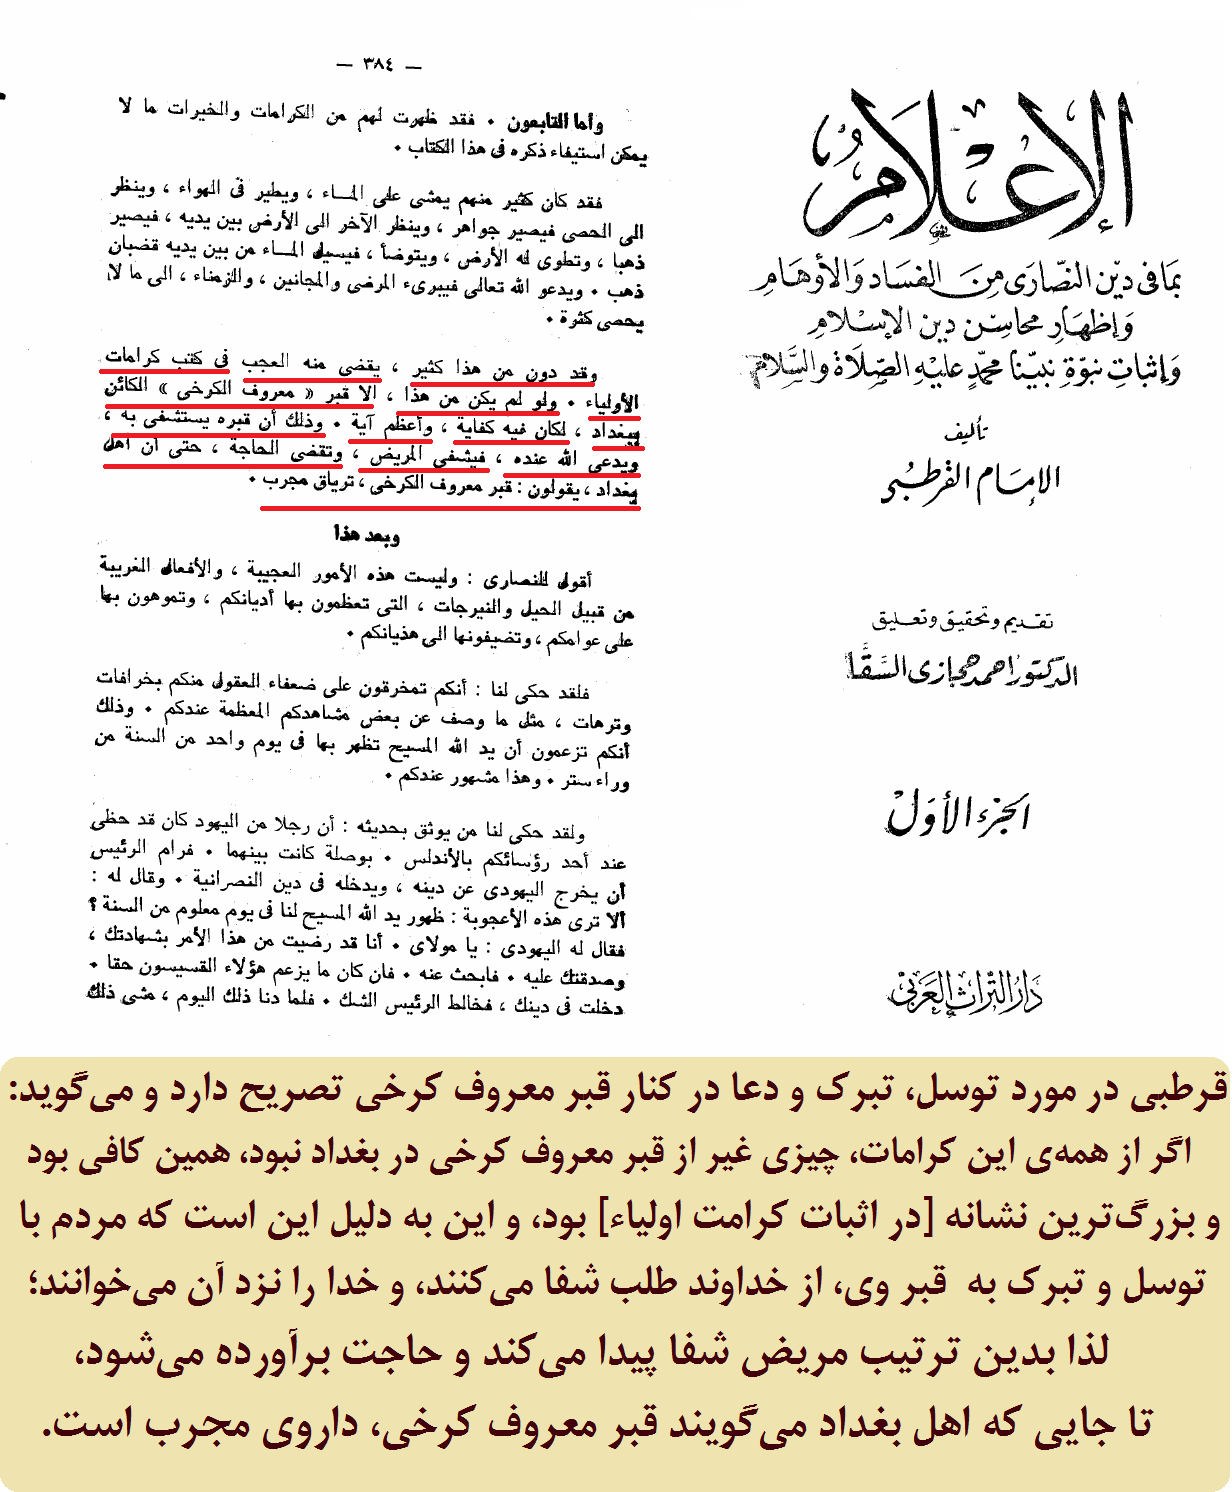 الإعلام
بما في دين النصارى من الفساد والأوهام
وإظهار محاسن دين الإسلام
وإثبات نبوة نبينا محمد عليه الصلاة والسلام
تأليف
الإمام القرطبي
تقديم وتحقيق وتعليق
الدكتور احمد حجازى السقا
الجزء الأول
دار التراث العربي
— ٣٨٤ —
وأما التابعون • فقد ظهرت لهم من الكرامات والخيرات ما لا
يمكن استيفاء ذكره فى هذا الكتاب •
فقد كان كثير منهم يمشى على المـاء ، ويطير فى الهواء ، وينظر
الى الحصى فيصير جواهر ، وينظر الآخر الى الأرض بين يديه ، فيصير
ذهبا ، وتطوى له الأرض ، ويتوضأ ، فيسيل المـاء من بين يديه قضبان
ذهب • ويدعو الله تعالى فيبرىء المرضى والمجانين ، والزمناء ، الى ما لا
يحصى كثرة •
وقد دون من هذا كثير ، يقضى منه العجب فى كتب كرامات
الأولياء • ولو لم يكن من هذا ، الا قبر « معروف الكرخى » الكائن
ببغداد ، لكان فيه كفاية ، وأعظم آية • وذلك أن قبره يستشفى به ،
ويدعى الله عنده ، فيشفى المريض ، وتقضى الحاجة ، حتى أن أهل
بغداد ، يقولون : قبر معروف الكرخى ، ترياق مجرب •
وبعد هذا
أقول للنصارى : وليست هذه الأمور العجيبة ، والأفعال الغريبة
من قبيل الحيل والنيرجات ، التى تعظمون بها أديانكم ، وتموهون بها
على عوامكم ، وتضيفونها الى هذيانكم •
فلقد حكى لنا : أنكم تمخرقون على ضعفاء العقول منكم بخرافات
وترهات ، مثل ما وصف عن بعض مشاهدكم المعظمة عندكم • وذلك
أنكم تزعمون أن يد الله المسيح تظهر بها فى يوم واحد من السنة من
وراء ستر • وهذا مشهور عندكم •
ولقد حكى لنا من يوثق بحديثه : أن رجلا من اليهود كان قد حظى
عند أحد رؤسائكم بالأندلس • بوصلة كانت بينهما • فرام الرئيس
أن يخرج اليهودى عن دينه ، ويدخله فى دين النصرانية • وقال له :
ألا ترى هذه الأعجوبة : ظهور يد الله المسيح لنا فى يوم معلوم من السنة ؟
فقال له اليهودى : يا مولاى • أنا قد رضيت من هذا الأمر بشهادتك ،
وصدقتك عليه • فابحث عنه • فان كان ما يزعم هؤلاء القسيسون حقا •
دخلت فى دينك ، فخالط الرئيس الشك • فلما دنا ذلك اليوم ، مشى ذلك
قرطبی در مورد توسل، تبرک و دعا در کنار قبر معروف کرخی تصریح دارد و می‌گوید:
اگر از همه‌ی این کرامات، چیزی غیر از قبر معروف کرخی در بغداد نبود، همین کافی بود
و بزرگ‌ترین نشانه [در اثبات کرامت اولیاء] بود، و این به دلیل این است که مردم با
توسل و تبرک به قبر وی، از خداوند طلب شفا می‌کنند، و خدا را نزد آن می‌خوانند؛
لذا بدین ترتیب مریض شفا پیدا می‌کند و حاجت برآورده می‌شود،
تا جایی که اهل بغداد می‌گویند قبر معروف کرخی، داروی مجرب است.